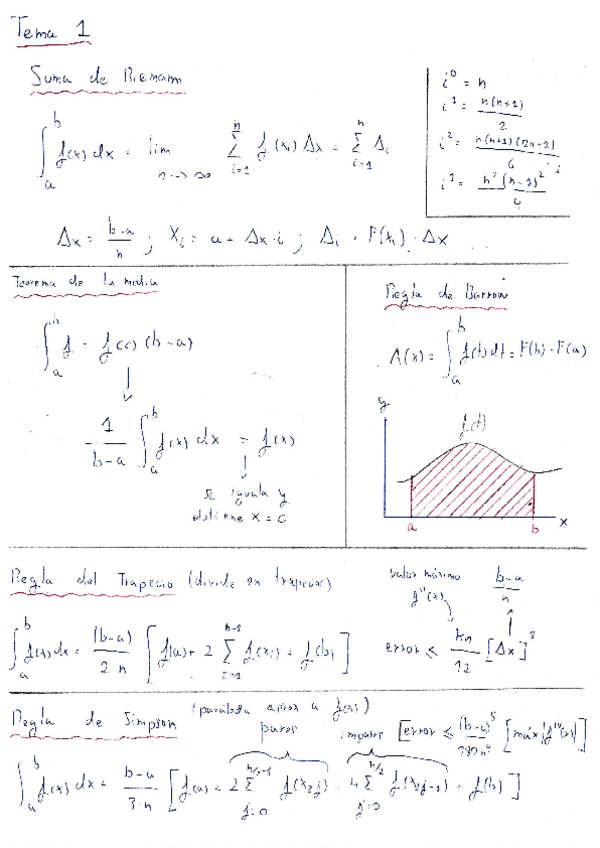 Tema 1
Suma de Riemann
∫_a^b f(x) dx = lim_{n→∞} ∑_{i=1}^n f(x_i) Δx = ∑_{i=1}^n Δ_i
i^0 = n
i^1 = n(n+1)/2
i^2 = n(n+1)(2n+1)/6
Δx = (b-a)/n ; X_i = a + Δx · i ; Δ_i = F(x_i) · Δx
Teorema de la media
∫_a^b f = f(c) (b-a)
1/(b-a) ∫_a^b f(x) dx = f(x)
se iguala y
obtiene x = c
Regla de Barrow
A(x) = ∫_a^b f(t) dt = F(b) - F(a)
y
f(t)
a b x
Regla del Trapecio (divide en trapecios)
∫_a^b f(x) dx = (b-a)/(2n) [f(a) + 2 ∑_{i=1}^{n-1} f(x_i) + f(b)]
valor máximo
f''(x)
(b-a)/n
error ≤ kn/12 [Δx]^3
Regla de Simpson (parábola aprox a f(x))
pares impares [error ≤ (b-a)^5/(180n^4) [máx|f^{IV}(x)|]
∫_a^b f(x) dx = (b-a)/(3·n) [f(a) + 2 ∑_{j=0}^{n/2-1} f(x_{2j}) + 4 ∑_{j=0}^{n/2} f(x_{2j-1}) + f(b)]